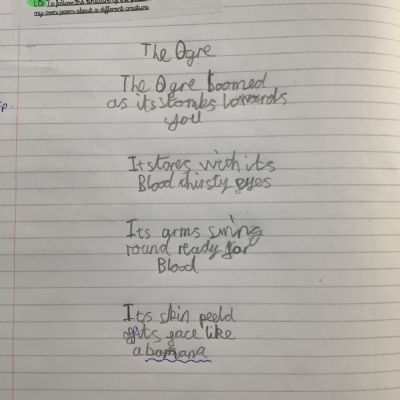 LO: To follow the structure of the poem
my own poem about a different creature
The Ogre
The Ogre boomed
as its stombs towards
you
It stares with its
Blood thirsty eyes
Its arms swing
round ready for
Blood
Its skin peeld
off its face like
a banana